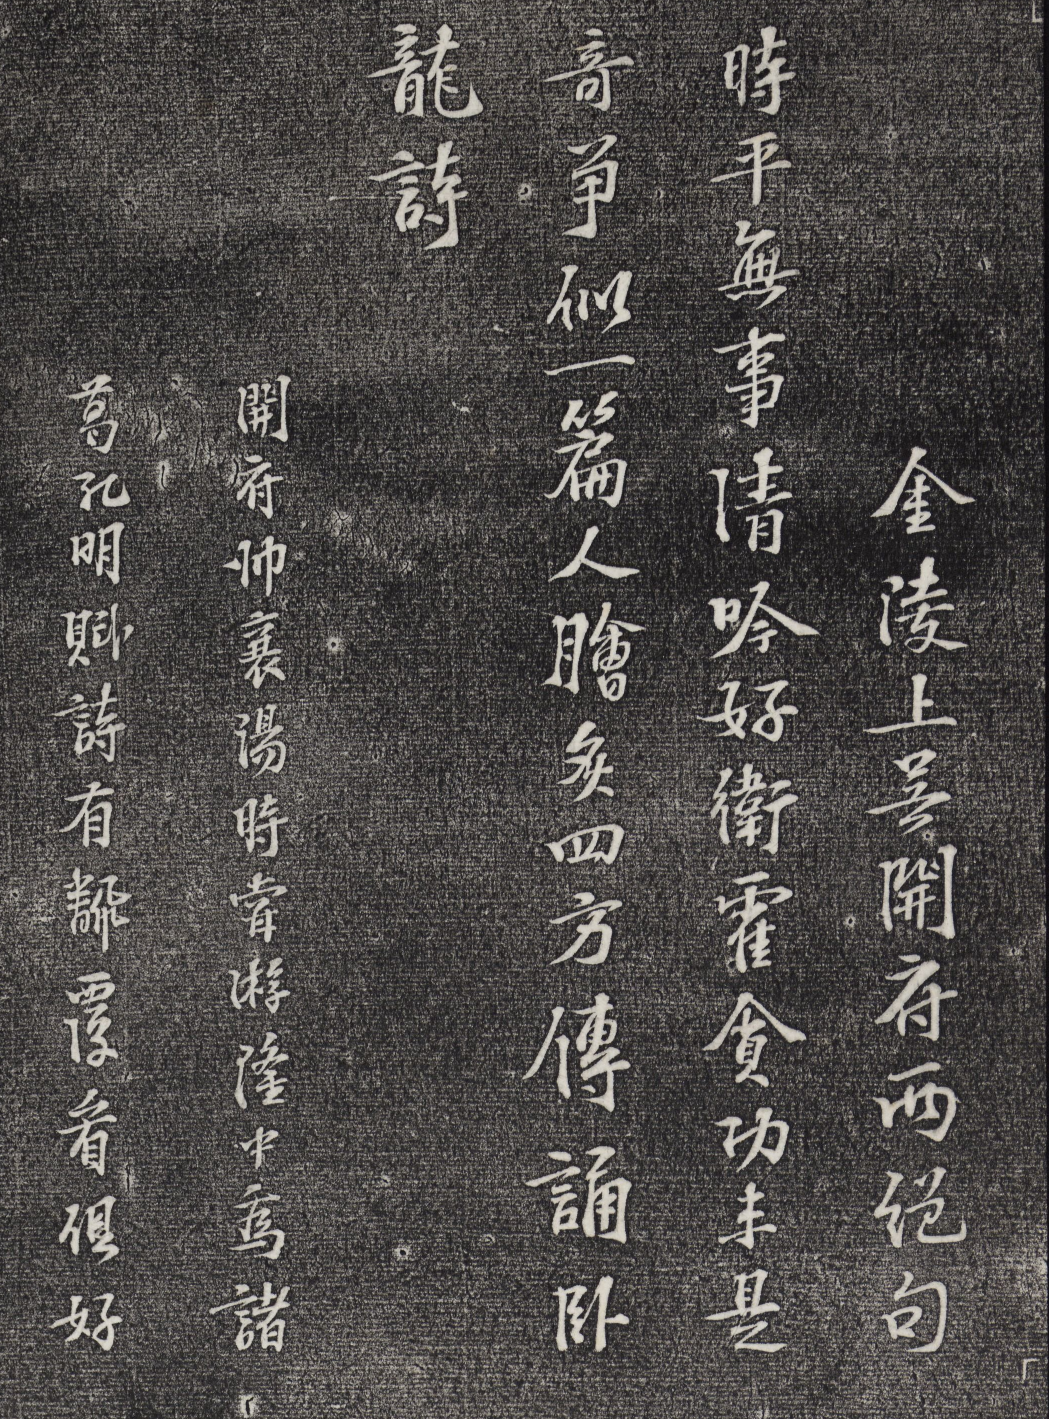 金陵上吳開府兩絕句
時平無事清吟好衛霍貪功未是
奇爭似一篇人膾炙四方傳誦臥
龍詩
開府帥襄陽時嘗游隆中為諸
葛孔明賦詩有飜覆看俱好